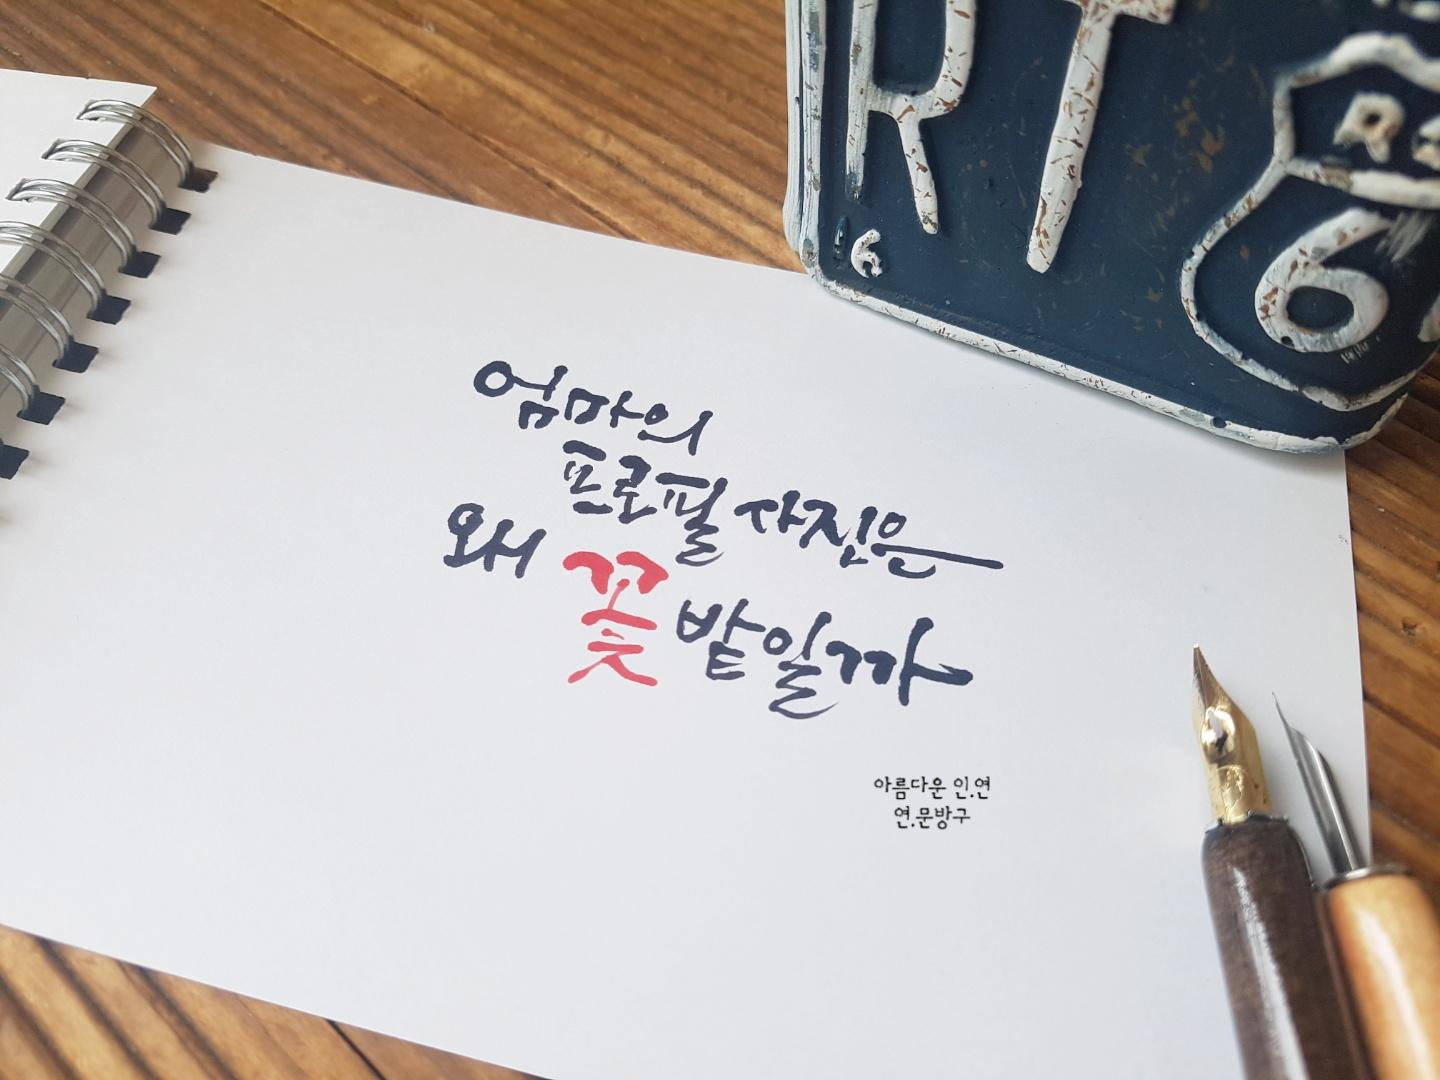 RT
6
R
6
엄마의
프로필 사진은
왜 꽃밭일까
아름다운 인.연
연.문방구